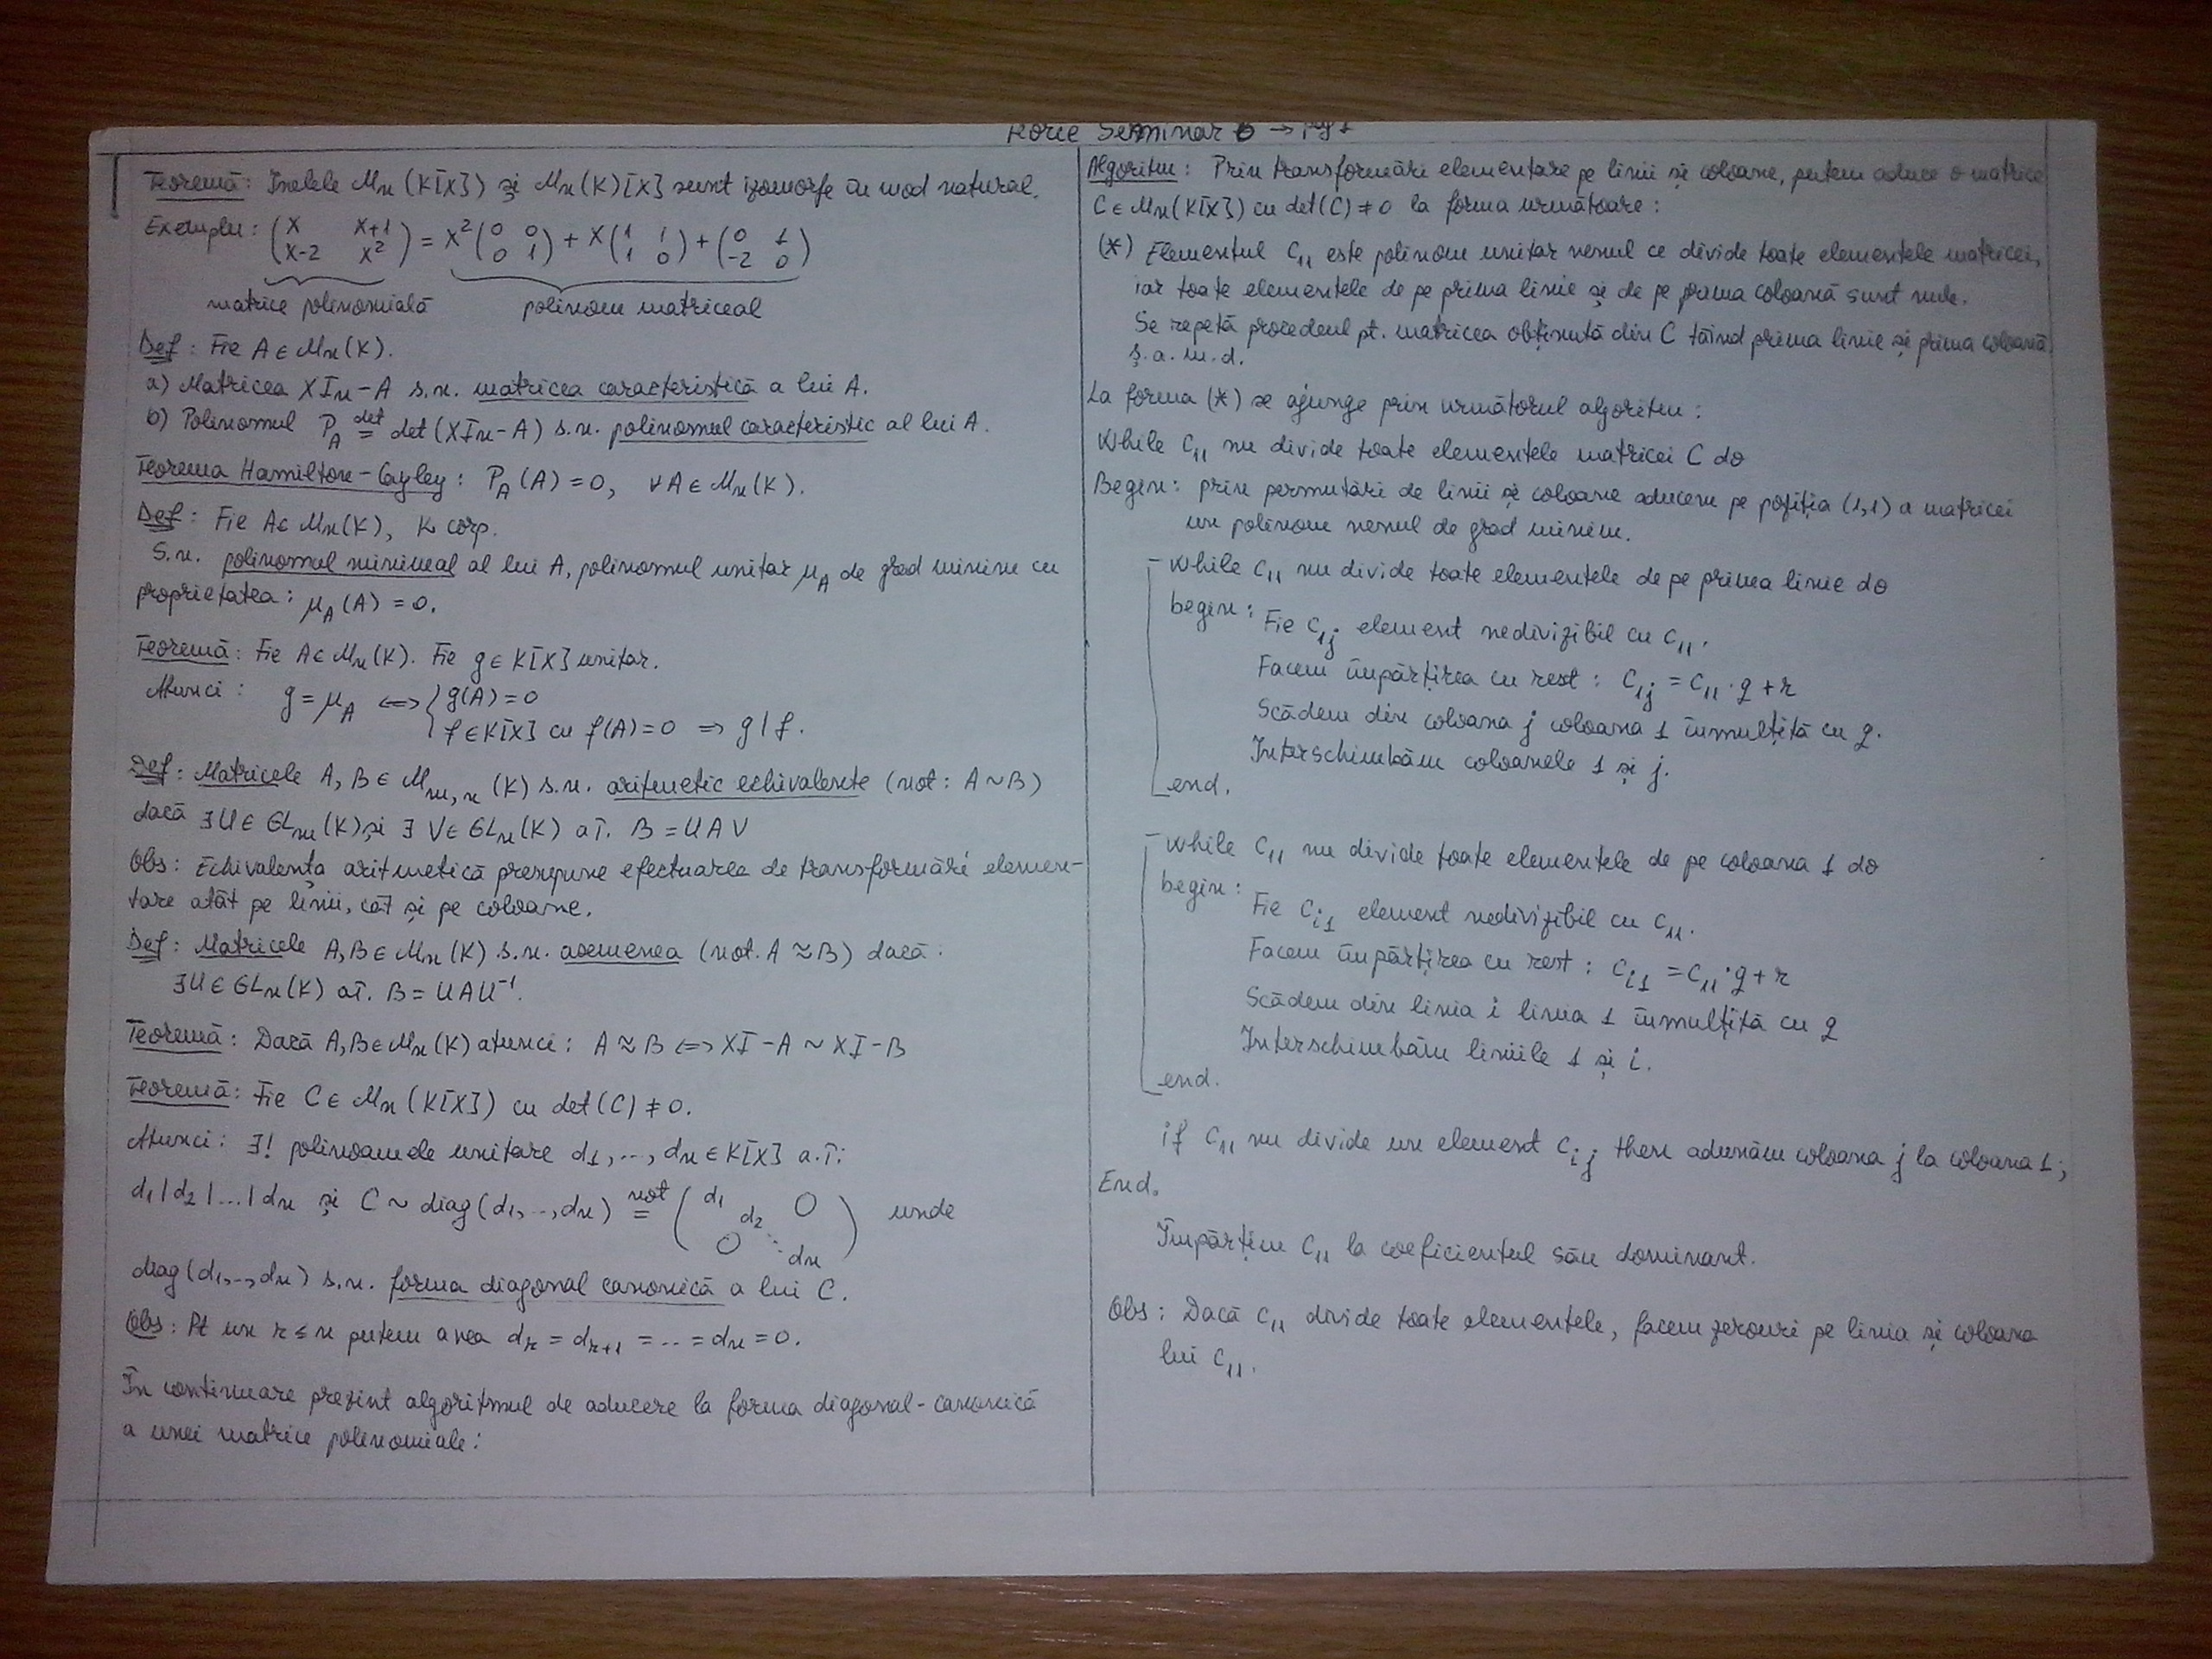 Seminar 6 → pag 1
Teoremă: Inelele Mn(K[X]) și Mn(K)[X] sunt izomorfe în mod natural.
Exemplu: (X X+1
X-2 X²) = X²(0 0
0 1) + X(1 1
1 0) + (0 1
-2 0)
matrice polinomială polinom matriceal
Def: Fie A ∈ Mn(K).
a) Matricea XIn-A s.n. matricea caracteristică a lui A.
b) Polinomul P_A =^def det(XIn-A) s.n. polinomul caracteristic al lui A.
Teorema Hamilton-Cayley: P_A(A)=0, ∀A∈Mn(K).
Def: Fie A∈Mn(K), K corp.
S.n. polinomul minimal al lui A, polinomul unitar μ_A de grad minim cu
proprietatea: μ_A(A)=0.
Teoremă: Fie A∈Mn(K). Fie g∈K[X] unitar.
Atunci: g=μ_A ⟺ { g(A)=0
f∈K[X] cu f(A)=0 ⇒ g|f.
Def: Matricele A,B∈M_m,n(K) s.n. aritmetic echivalente (not: A~B)
dacă ∃U∈GLm(K) și ∃ V∈GLn(K) aî. B=UAV
Obs: Echivalența aritmetică presupune efectuarea de transformări elemen-
tare atât pe linii, cât și pe coloane.
Def: Matricele A,B∈Mn(K) s.n. asemenea (not. A≈B) dacă:
∃U∈GLn(K) aî. B=UAU⁻¹.
Teoremă: Dacă A,B∈Mn(K) atunci: A≈B ⟺ XI-A ~ XI-B
Teoremă: Fie C∈Mn(K[X]) cu det(C)≠0.
Atunci: ∃! polinoamele unitare d1,...,dn∈K[X] a.î:
d1|d2|...|dn și C~diag(d1,...,dn) =^not (d1 d2 O O ⋱ dn) unde
diag(d1,...,dn) s.n. forma diagonal canonică a lui C.
Obs: Pt un r≤n putem avea d_r=d_r+1=...=dn=0.
În continuare prezint algoritmul de aducere la forma diagonal-canonică
a unei matrice polinomiale:
Algoritm: Prin transformări elementare pe linii și coloane, putem aduce o matrice
C∈Mn(K[X]) cu det(C)≠0 la forma următoare:
(*) Elementul C11 este polinom unitar nenul ce divide toate elementele matricei,
iar toate elementele de pe prima linie și de pe prima coloană sunt nule.
Se repetă procedeul pt. matricea obținută din C tăind prima linie și prima coloană
ș.a.m.d.
La forma (*) se ajunge prin următorul algoritm:
While C11 nu divide toate elementele matricei C do
Begin: prin permutări de linii și coloane aducem pe poziția (1,1) a matricei
un polinom nenul de grad minim.
while C11 nu divide toate elementele de pe prima linie do
begin: Fie C1j element nedivizibil cu C11.
Facem împărțirea cu rest: C1j=C11·q+r
Scădem din coloana j coloana 1 înmulțită cu q.
Interschimbăm coloanele 1 și j.
end.
while C11 nu divide toate elementele de pe coloana 1 do
begin: Fie Ci1 element nedivizibil cu C11.
Facem împărțirea cu rest: Ci1=C11·q+r
Scădem din linia i linia 1 înmulțită cu q
Interschimbăm liniile 1 și i.
end.
if C11 nu divide un element Cij then adunăm coloana j la coloana 1;
End.
Împărțim C11 la coeficientul său dominant.
Obs: Dacă C11 divide toate elementele, facem zerouri pe linia și coloana
lui C11.